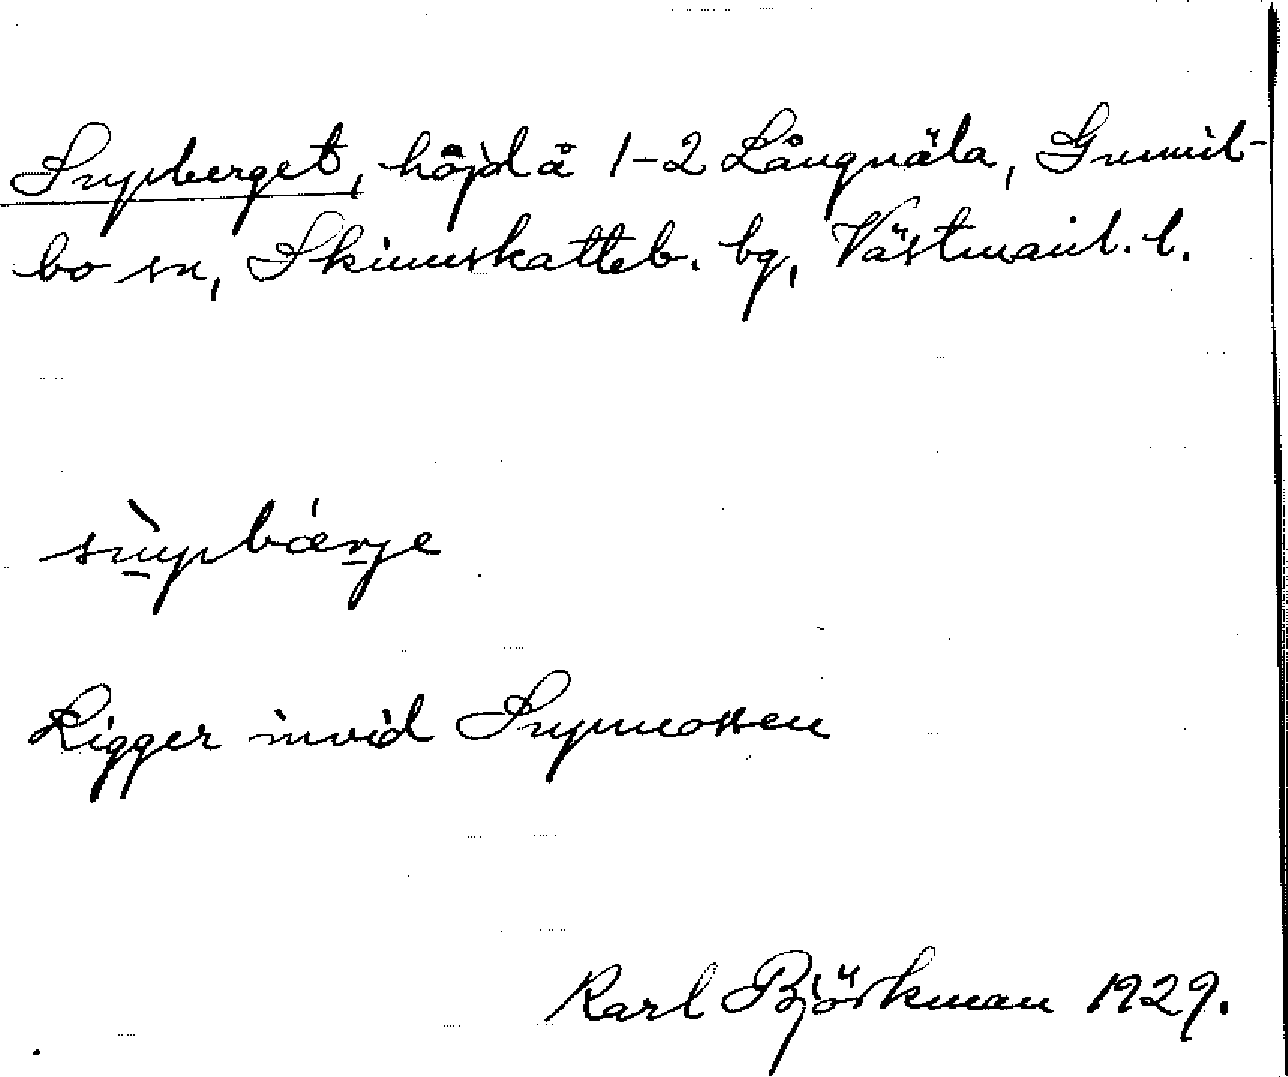 Supberget, höjd å 1-2 Långnäla, Gunnil-
bo sn, Skinnskatteb. bg, Västmanl. l.
sùpbærje
Ligger invid Supmossen
Karl Björkman 1929.